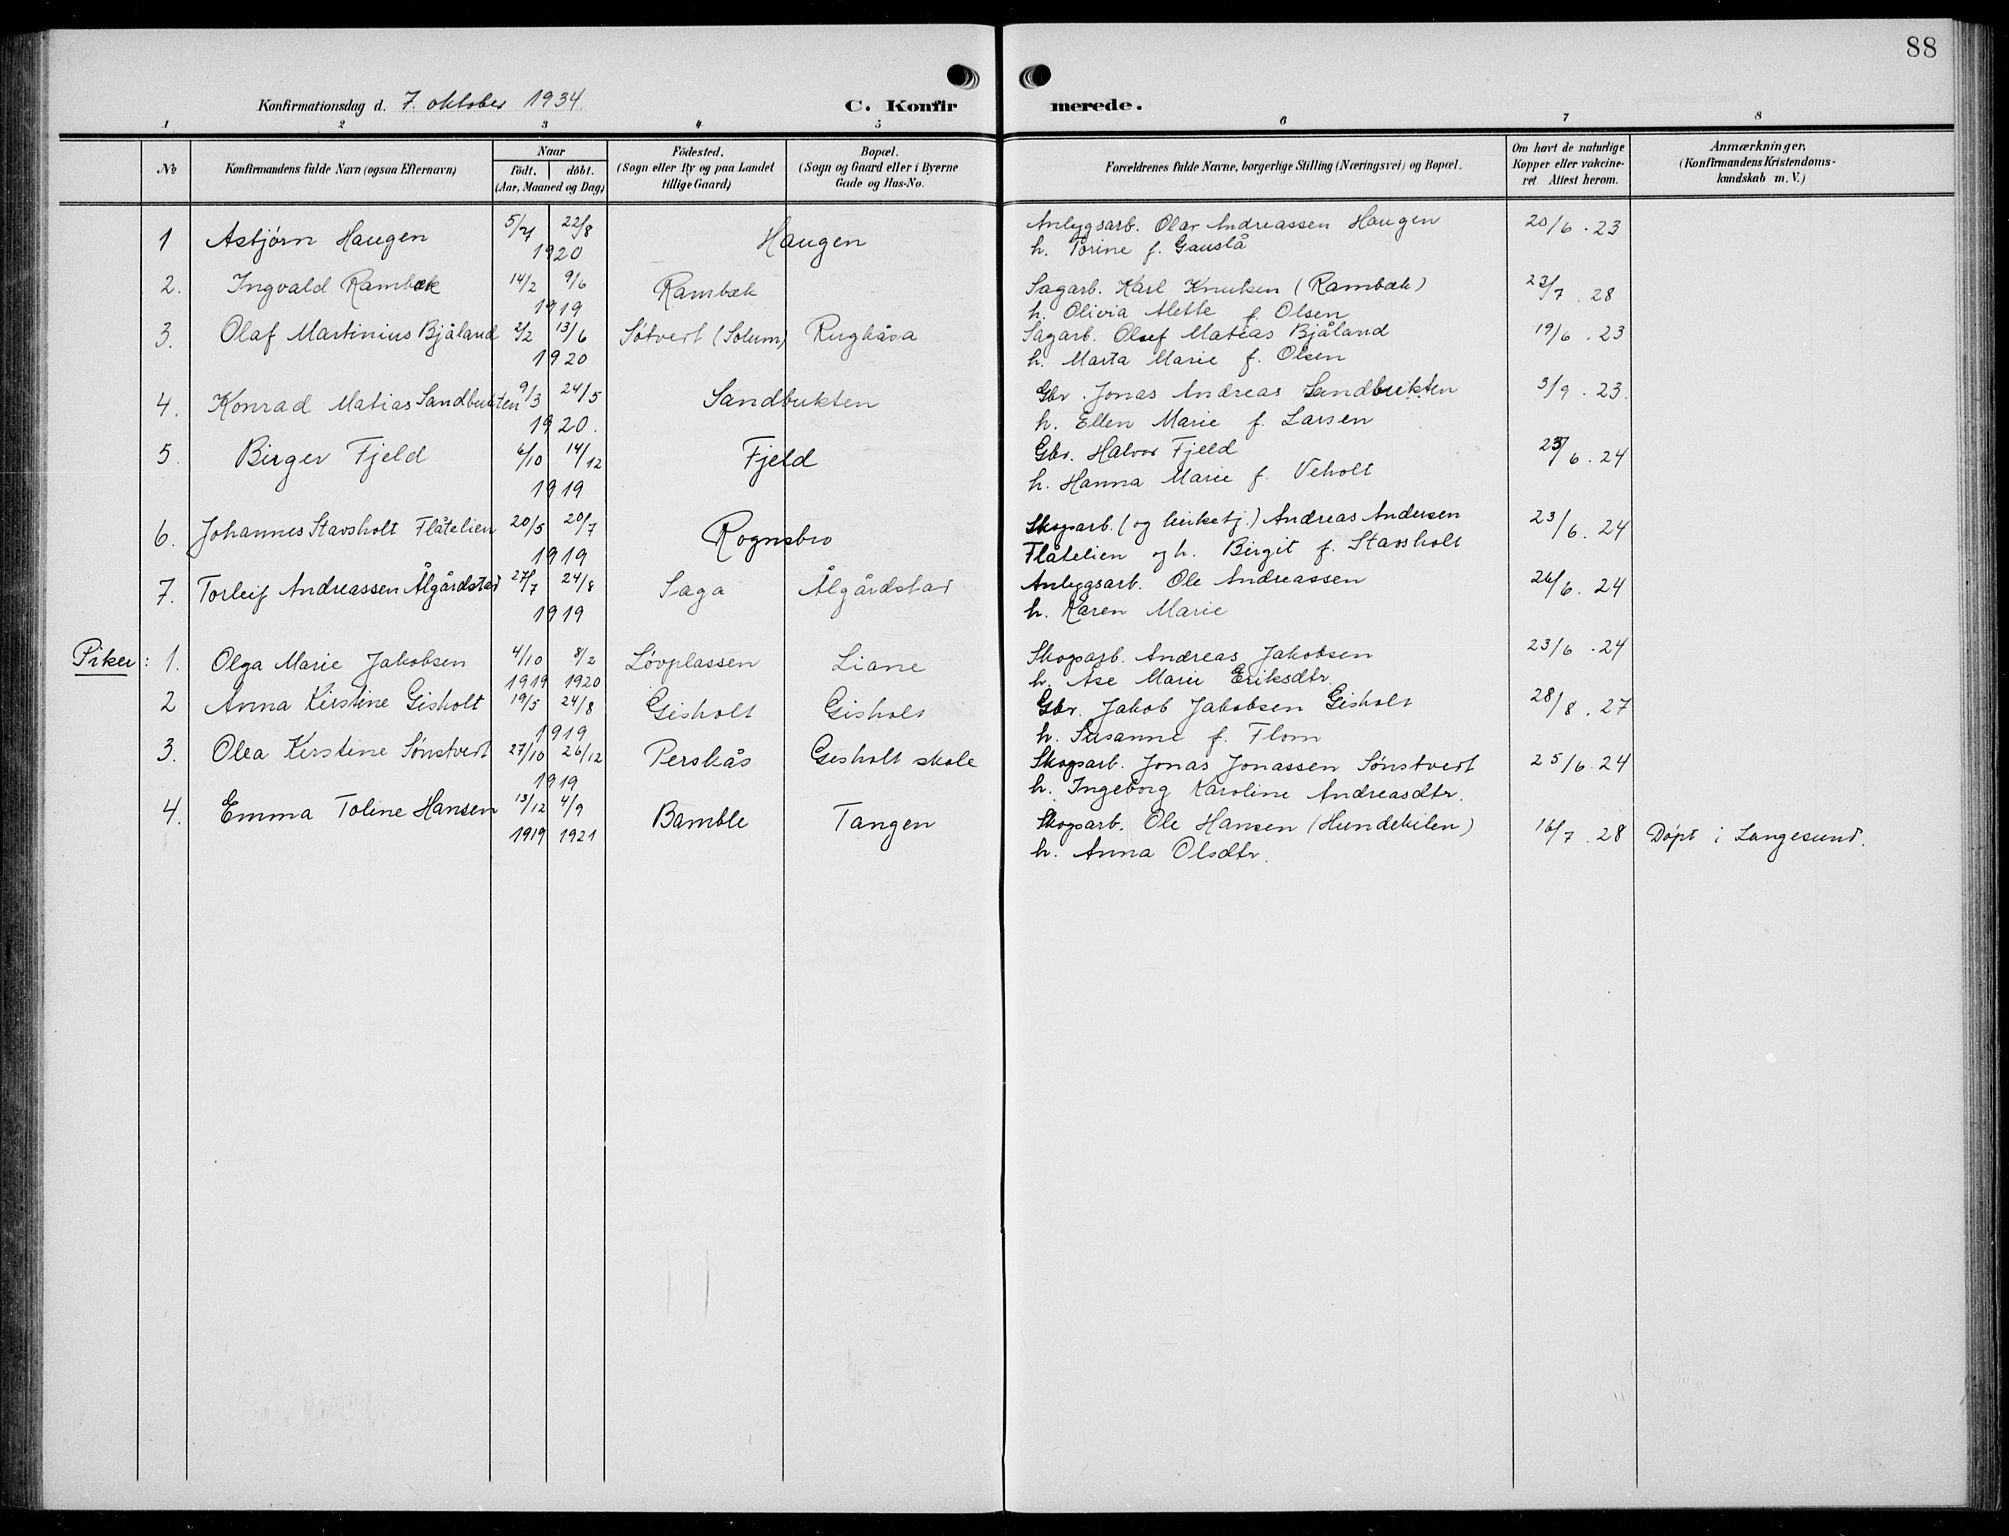 88
Konfirmationsdag d. 7. oktober 1934.
C. Konfirmerede.
1 2 3 4 5 6 7 8
No
Konfirmandens fulde Navn (ogsaa Efternavn)
Naar
födt. döbt.
(Aar, Maaned og Dag)
Födested.
(Sogn eller By og paa Landet
tillige Gaard)
Bopæl.
(Sogn og Gaard eller i Byerne
Gade og Hus-No.
Forældrenes fulde Navne, borgerlige Stilling (Næringsvei) og Bopæl.
Om havt de naturlige
Kopper eller vakcine-
ret. Attest herom.
Anmærkninger.
(Konfirmandens Kristendoms-
kundskab m. V.)
1 Asbjørn Haugen 22/8 Haugen Anleggsarb. Olav Andreassen Haugen 20/6 . 23
1920 h. Torine f. Gauslå
2. Ingvald Rambæk 14/2 9/6 Rambæk Sagarb. Karl Knutsen (Rambæk) 23/7 . 28
1919 h. Olivia Mette f. Olsen
3. Olaf Martinius Bjåland 2/2 13/6 Søtvert (Solum) Rughåsa Sagarb. Olaf Matias Bjåland 19/6 . 23
1920 h. Marta Marie f. Olsen
4. Konrad Matias Sandbukten 9/3 24/5 Sandbukten Gbr. Jonas Andreas Sandbukten 3/9 . 23.
1920. h. Ellen Marie f. Larsen
5. Birger Fjeld 6/10 14/12 Fjeld Gbr. Halvor Fjeld 23/6 . 24
1919 h. Hanna Marie f. Veholt
6. Johannes Stavsholt Flåtelien 20/5 20/7 Rognsbro Skogarb. (og kirketj.) Andreas Andersen 23/6 . 24
1919 Flåtelien og h. Birgit f. Stavsholt
7. Torleif Andreassen Ålgårdstad 27/7 24/8 Saga Ålgårdstad Anleggsarb. Ole Andreassen 26/6 . 24
1919 h. Karen Marie
Piker: 1. Olga Marie Jakobsen 4/10 8/2 Løvplassen Liane Skogsarb. Andreas Jakobsen 23/6 . 24
1919 1920 h. Åse Marie Eriksdtr.
2 Anna Kirstine Gisholt 19/5 24/8 Gisholt Gisholt Gbr. Jakob Jakobsen Gisholt 28/8 . 27
1919 h. Susanne f. Flom
3. Olea Kirstine Sønstvedt 27/10 26/12 Perskås Gisholt skole Skogsarb. Jonas Jonassen Sønstvedt 25/6 . 24
1919 h. Ingeborg Karoline Andreasdtr.
4. Emma Toline Hansen 13/12 4/9 Bamble Tangen Skogsarb. Ole Hansen (Hundekilen) 16/7 . 28 Døpt i Langesund.
1919 1921 h. Anna Olsdtr.